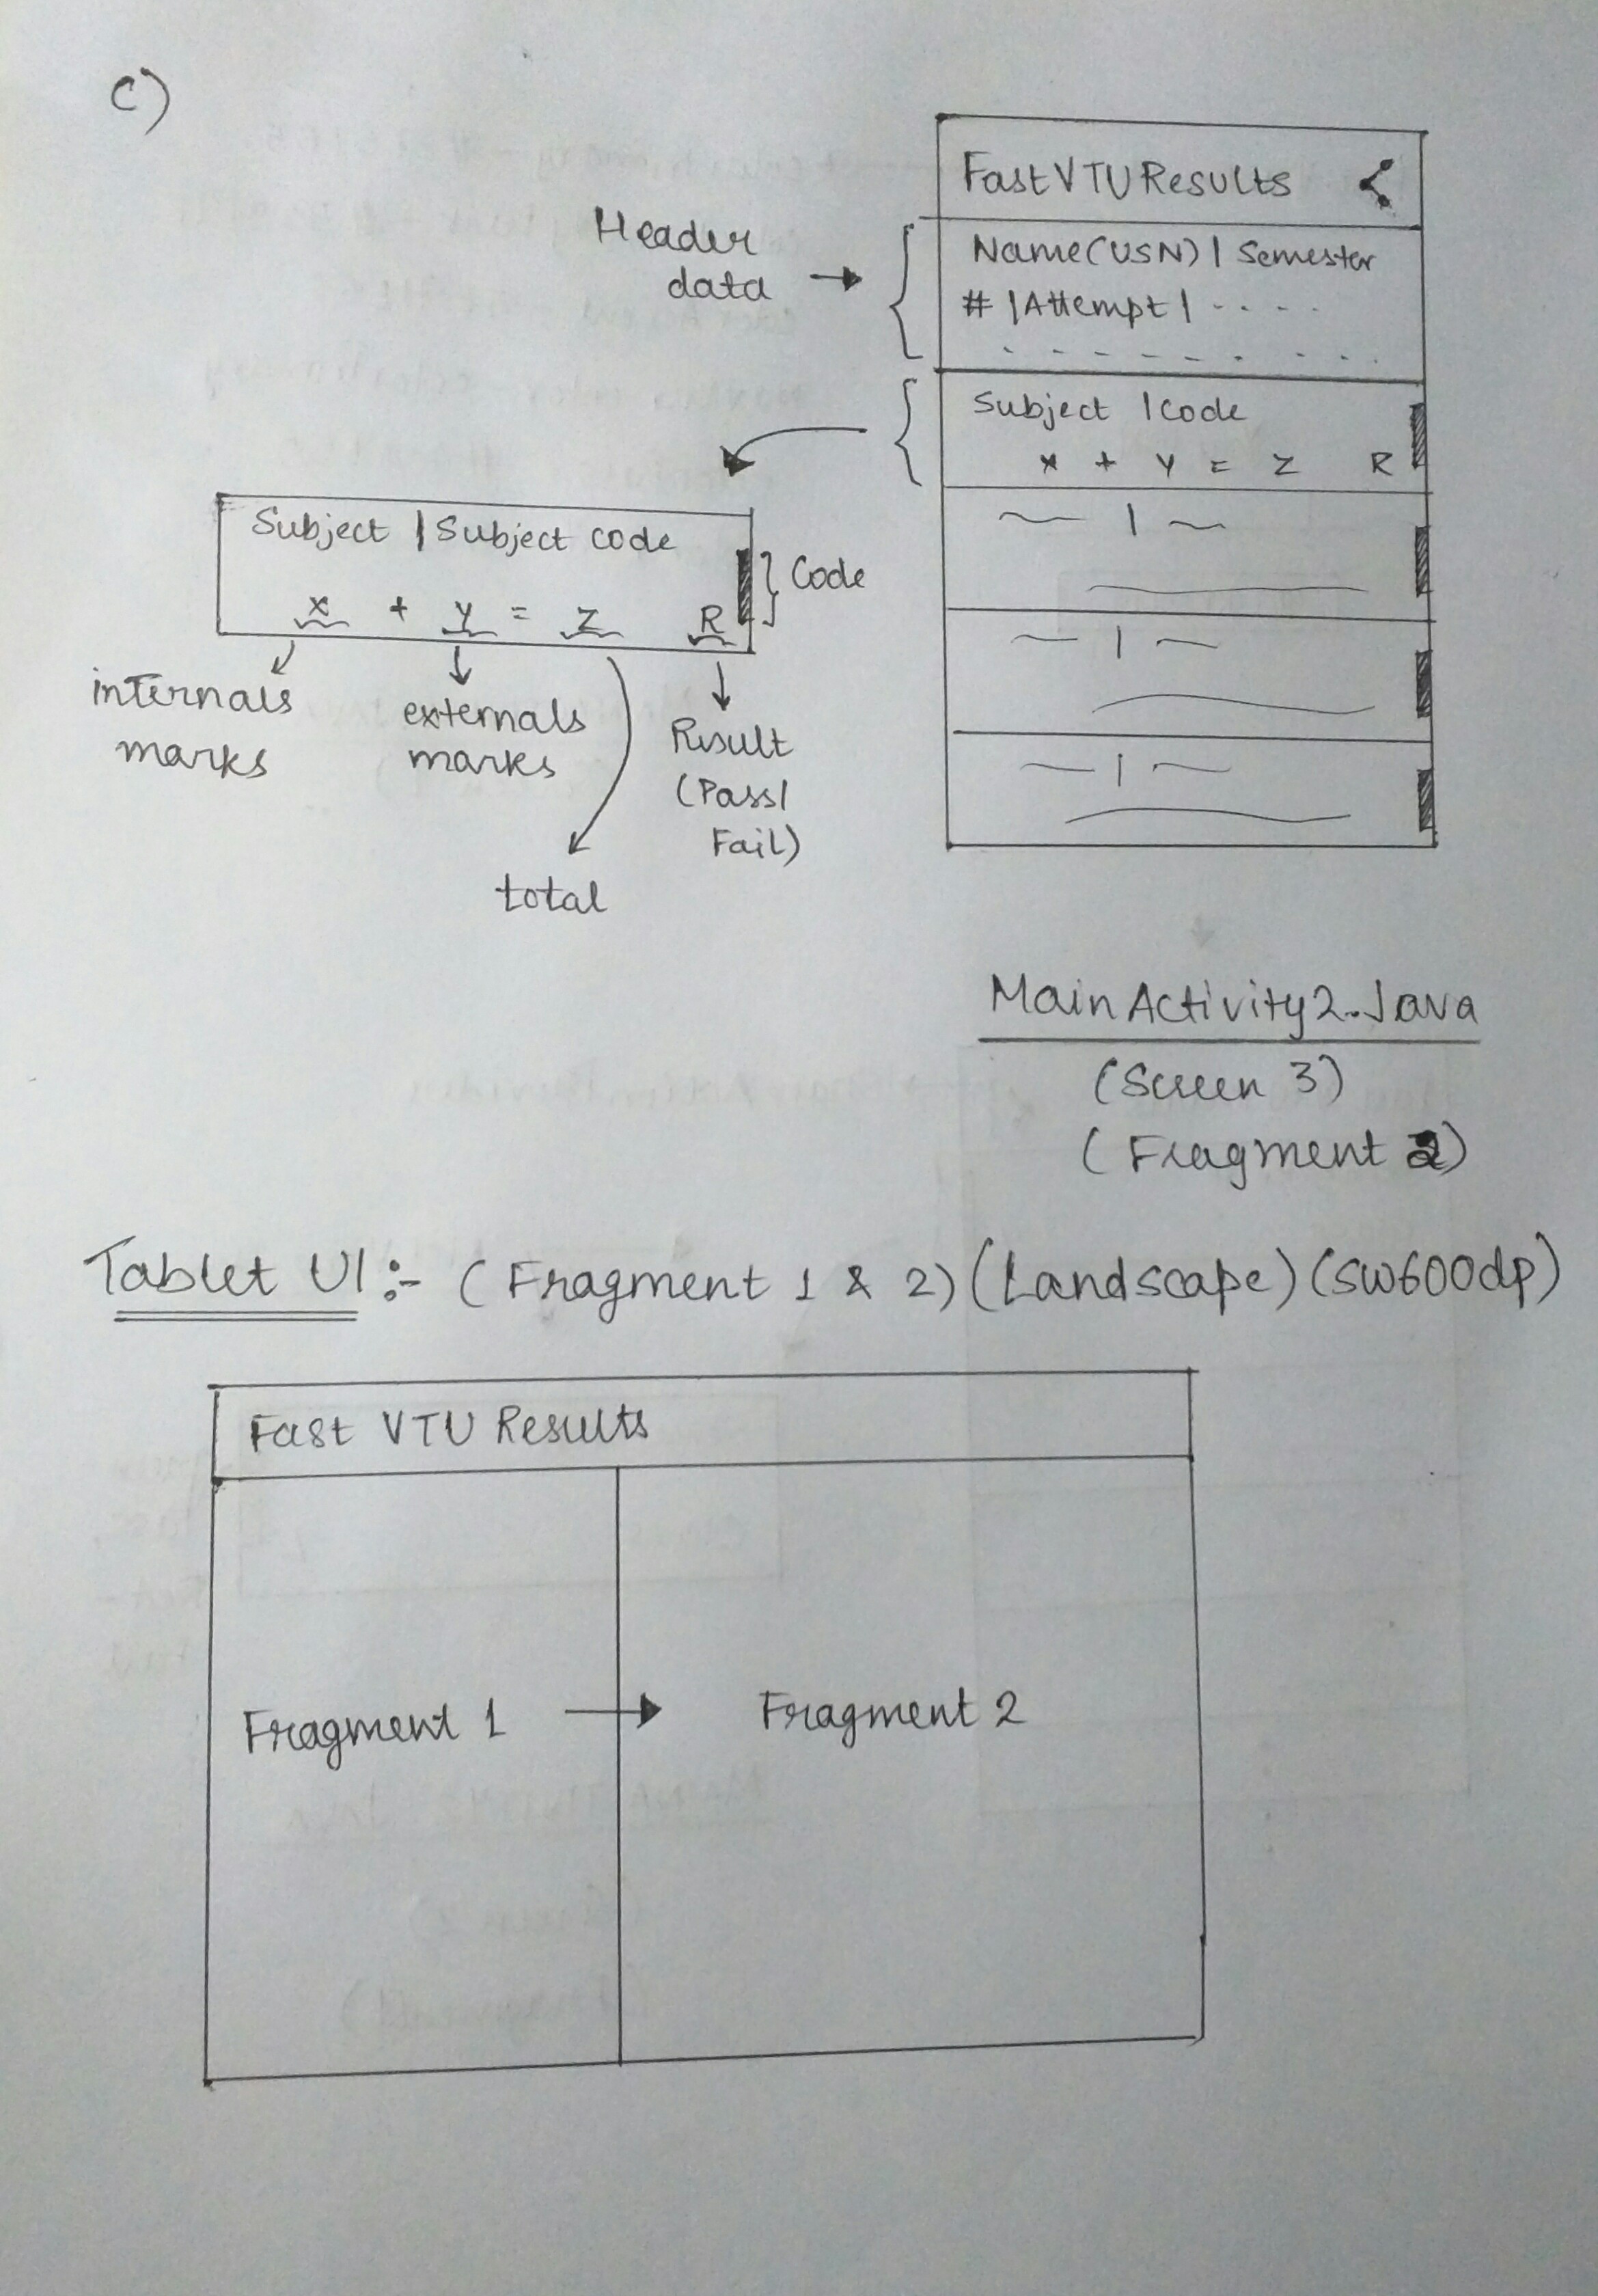 C)
FastVTUResults
Header
data
Name(USN) | Semester
# | Attempt | ....
Subject | Code
x + y = z R
~ | ~
~ | ~
~ | ~
Subject | Subject code
x + y = z R
} Code
internals
marks
externals
marks
total
Result
(Pass/
Fail)
MainActivity2.Java
(Screen 3)
(Fragment 2)
Tablet UI:- (Fragment 1 & 2) (Landscape) (sw600dp)
Fast VTU Results
Fragment 1
Fragment 2